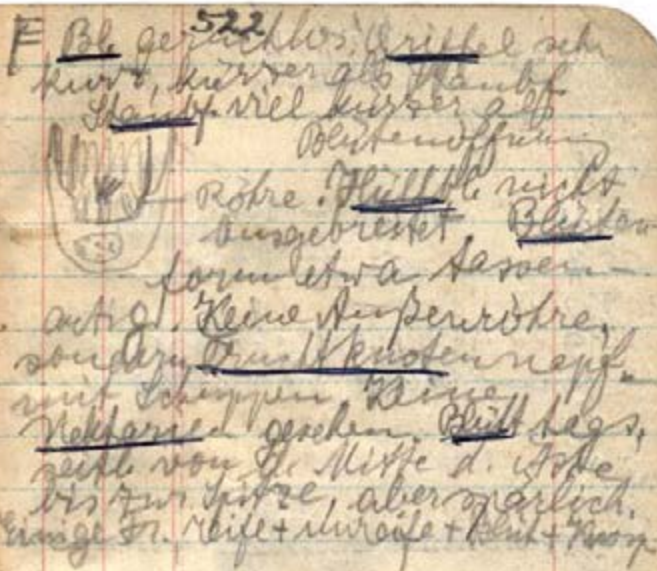 522
F Bl. geruchlos. Griffel sehr
kurz, kürzer als Staubf.
Staubf. viel kürzer als
Blütenöffnung
Röhre. Hüllbl. nicht
ausgebreitet. Blüten-
form etwa tassen-
artig. Keine Außenröhre,
sondern Fruchtknotennapf
mit Schuppen. Keine
Nektarien gesehen. Blüht tags,
seitl. von d. Mitte d. Äste
bis zur Spitze, aber spärlich.
Einige Fr. reife + unreife + Blüt + Knosp